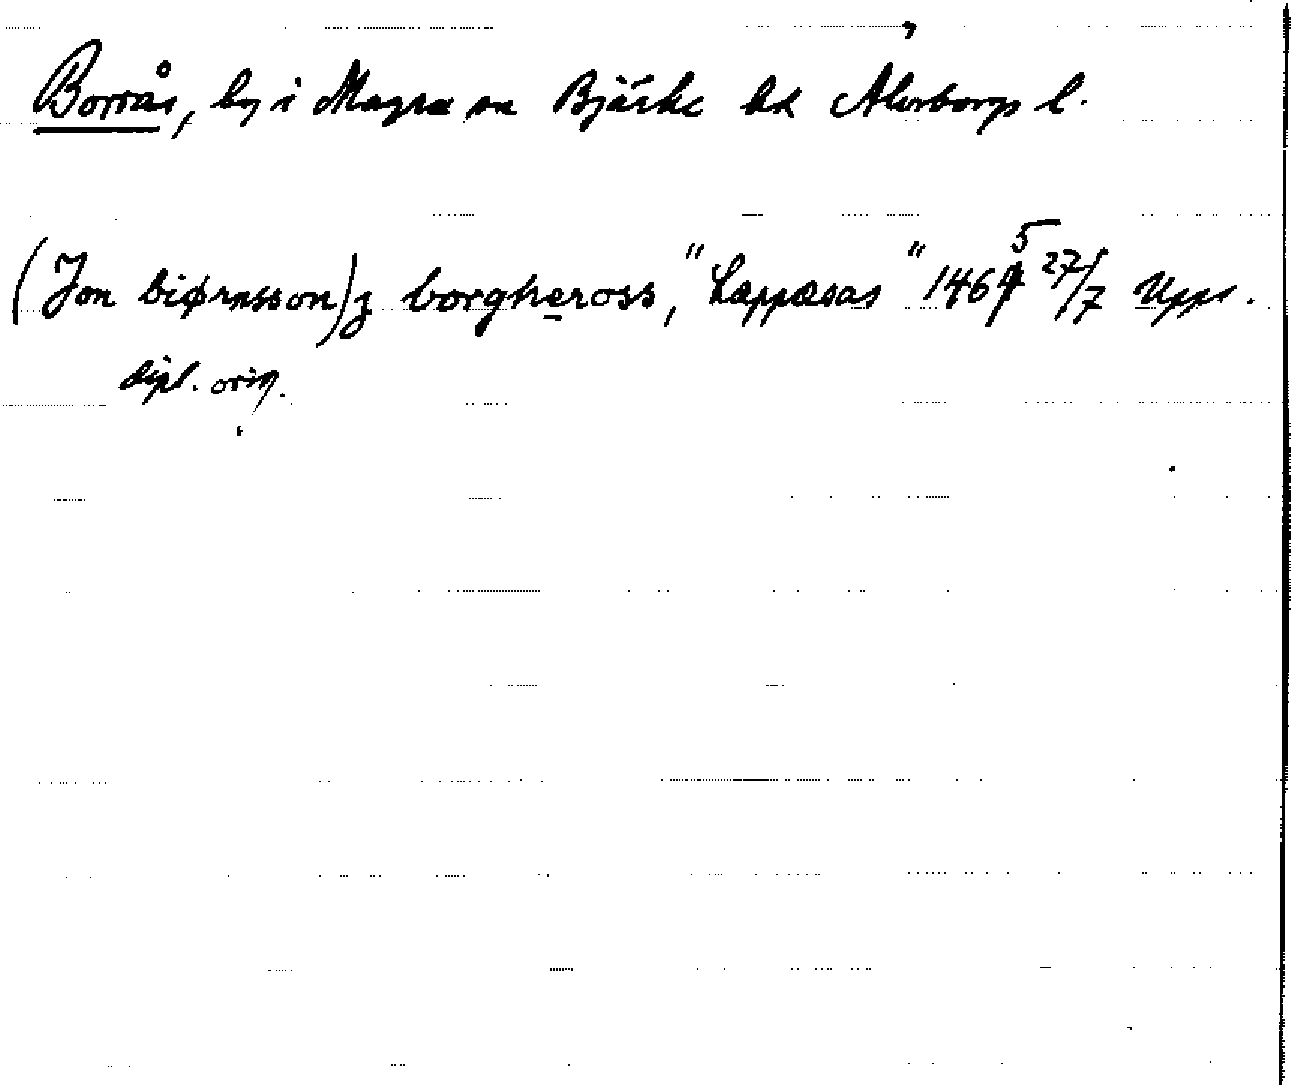 Borrås, by i Magra sn Bjärke hd Älvsborgs l.
(Jon biørnsson) j borgheross, "Læppæsas" 1465 27/7 Upps.
dipl. orig.